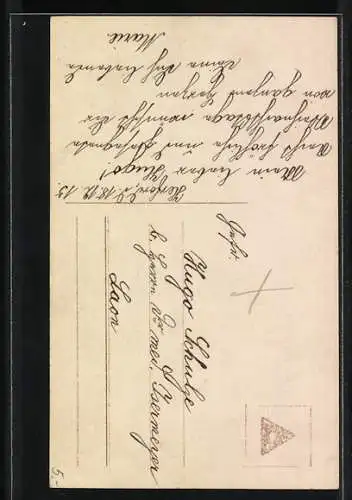 Mein lieber Hugo!
Recht fröhliche und gesegnete
Weihnachtstage wünscht Dir
von ganzem Herzen
Deine Dich liebende
Marie.
Hugo Schulze
b. Herrn Dr. med. Isermeyer
5.-